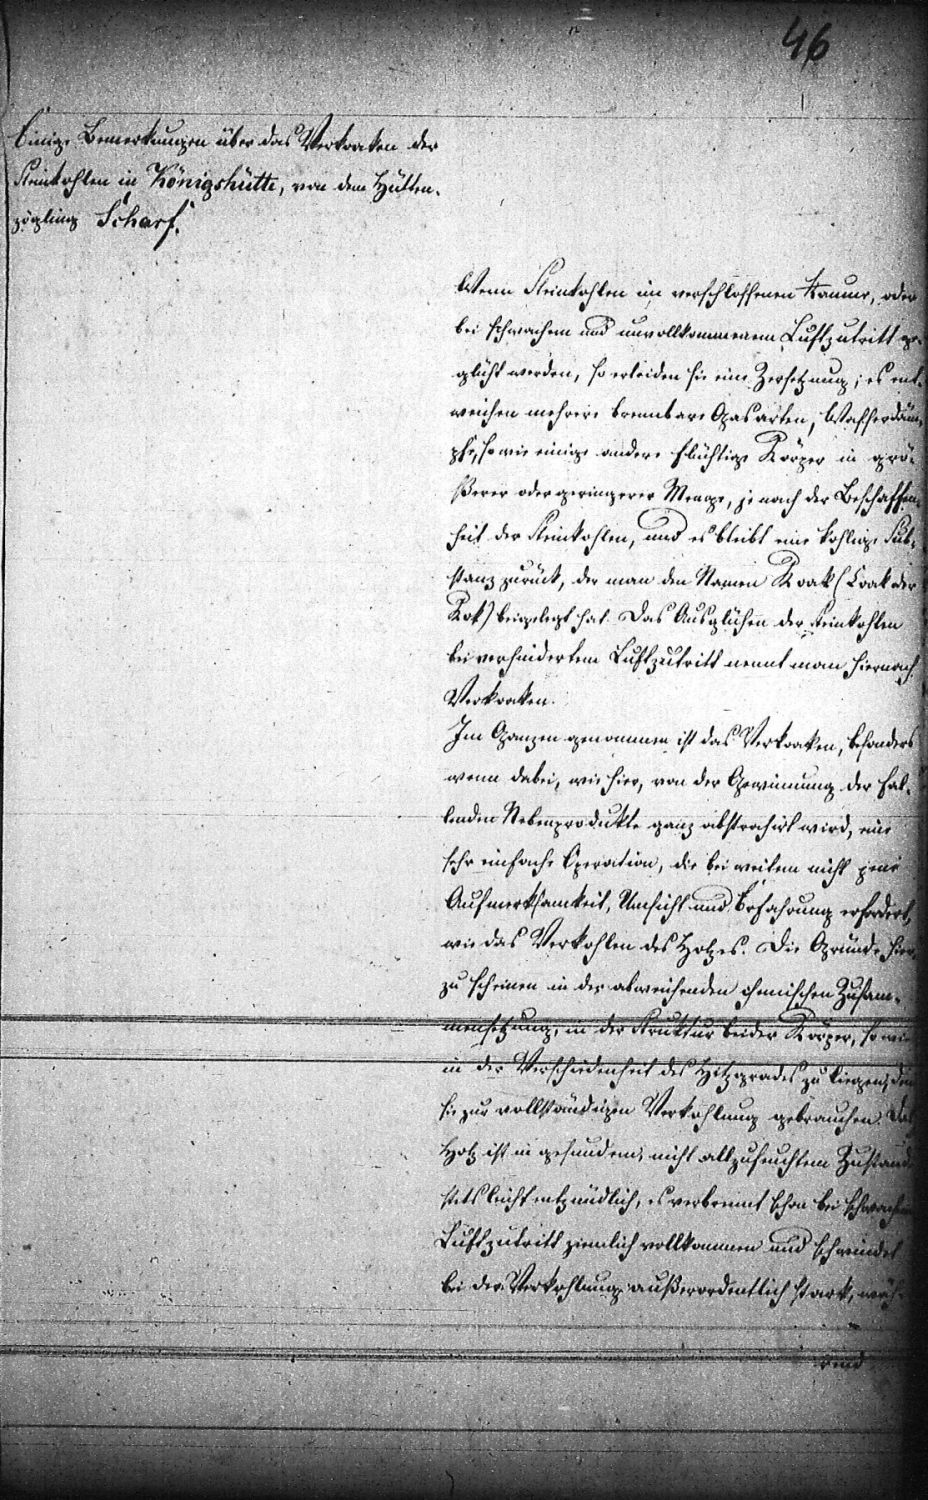 46
Einige Bemerkungen über das Verkoaken der
Steinkohlen in Königshütte, von dem Hütten-
zögling Scharf.
Wenn Steinkohlen im verschlossenen Raume, oder
bei schwachem und unvollkommenem Luftzutritt ge-
glüht werden, so erleiden sie eine Zersetzung; es ent-
weichen mehrere brennbare Gasarten, Wasserdäm-
pfe, so wie einige andere flüchtige Körper in grö-
ßerer oder geringerer Menge, je nach der Beschaffen-
heit der Steinkohlen, und es bleibt eine kohlige Sub-
stanz zurück, der man den Namen Koak (Coak oder
Kok) beigelegt hat. Das Ausglühen der Steinkohlen
bei verhindertem Luftzutritt nennt man hiernach
Verkoaken.
Im Ganzen genommen ist das Verkoaken, besonders
wenn dabei, wie hier, von der Gewinnung der fal-
lenden Nebenprodukte ganz abstrahirt wird, eine
sehr einfache Operation, die bei weitem nicht jene
Aufmerksamkeit, Umsicht und Erfahrung erfordert,
wie das Verkohlen des Holzes. Die Gründe hier-
zu scheinen in der abweichenden chemischen Zusam-
mensetzung, in der Struktur beider Körper, so wie
in der Verschiedenheit des Hitzgrades zu liegen, den
sie zur vollständigen Verkohlung gebrauchen. Das
Holz ist in gesundem, nicht allzufeuchtem Zustande
stets leicht entzündlich, es verbrennt schon bei schwachem
Luftzutritt ziemlich vollkommen und schwindet
bei der Verkohlung außerordentlich stark, wäh-
rend